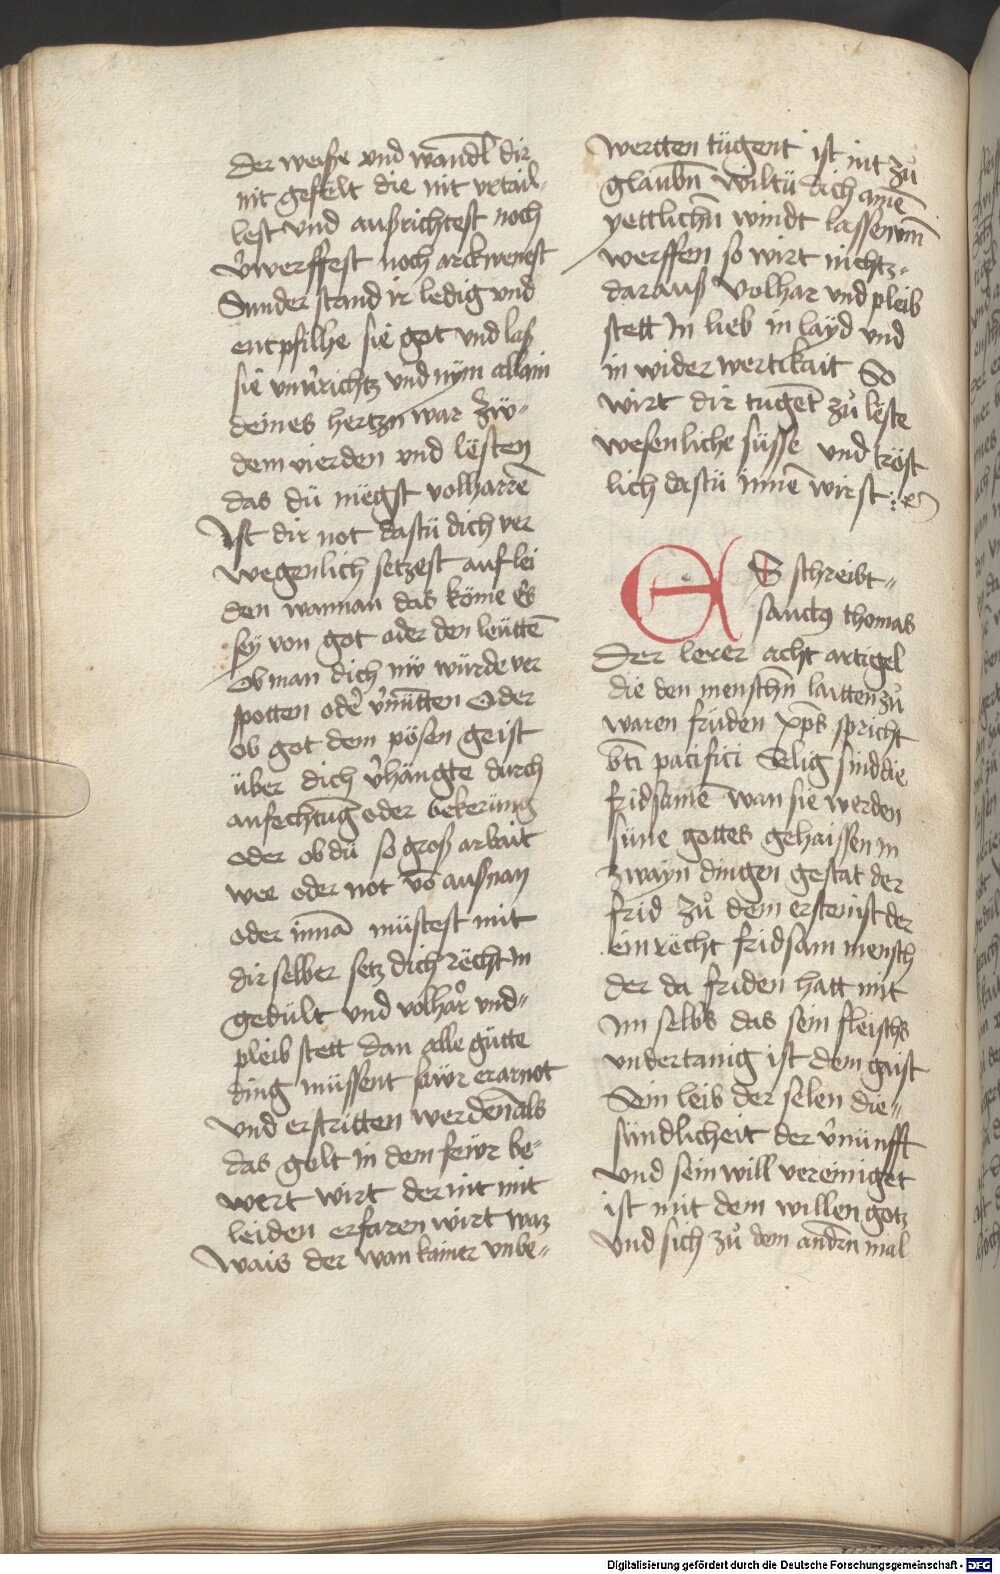 der weisse vnd wandl̄ dir
nit gefelt die nit vrtail-
lest vnd ausrichtest noch
v̉werffest noch arckwenest
Sunder stand ir ledig vnd
enpfilhe sie got vnd laß
sie vnv̉richtz vnd nÿm allain
deines hertzn war Zw-
dem vierden vnd lësten
das dü mëgst volharrē
Ist dir not dastü dich ver
wegenlich setzest auf lei
den wannan das köme Es
seÿ von got oder den leüttē
Ob man dich nw würde ver
spotten oder v̉nütten Oder
ob got dem pösen geist
über dich v̉hängte durch
anfechtūg oder bekerüng
oder ob dü so groß arbait
wee oder not vō ausnan
oder innā müstest mit
dir selber setz dich rëcht in
gedült vnd volhar vnd-
pleib stett dan alle gütte
ding müssent sawr erarnot
vnd erstritten werden als
das golt in dem fewr be-
wert wirt der nit mit
leiden erfaren wirt waz
wais der wan kainer vnbe-
wertten tügent ist nit zů
glaubn̄ wiltü dich ainē
yettlichn̄ windt lassen vm̄
werffen so wirt nichtz-
daraus Volhar vnd pleib
stett In lieb in laÿd vnd
in wider wertikait So
wirt dir tugēt zů lëste
wesenliche süsse vnd tröst
lich dastü innē wirst
ES schreibt-
sanctꝰ thomas
Der lerer acht artigel
die den menschn̄ laitten zů
waren friden xp̄s spricht
bt̄i pacifici Selig sind die
fridsamē wan sie werden
süne gottes gehaissen in
zwayn dingen gestat der
frid zů dem ersten ist der
ein rëcht fridsam mensch
der da friden hatt mit
im selbs das sein fleischs
vndertanig ist dem gaist
Sein leib der selen die-
sündlicheit der v̉nünfft
vnd sein will vereiniget
ist mit dem willen gotz
Vnd sich zů dem andrn̄ mal
Digitalisierung gefördert durch die Deutsche Forschungsgemeinschaft - DFG